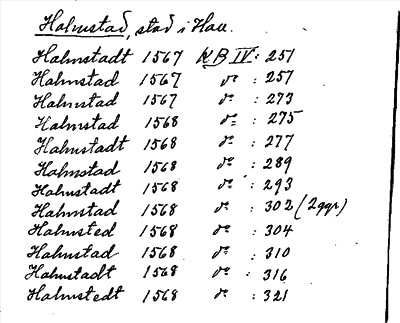 Halmstad, stad i Hall.
Halmstadt 1567 KB IV: 251
Halmstad 1567 do : 257
Halmstad 1567 do : 273
Halmstad 1568 do : 275
Halmstadt 1568 do : 277
Halmstad 1568 do : 289
Halmstadt 1568 do : 293
Halmstad 1568 do : 302 (2ggr)
Halmsted 1568 do : 304
Halmstad 1568 do : 310
Halmstadt 1568 do : 316
Halmstedt 1568 do : 321